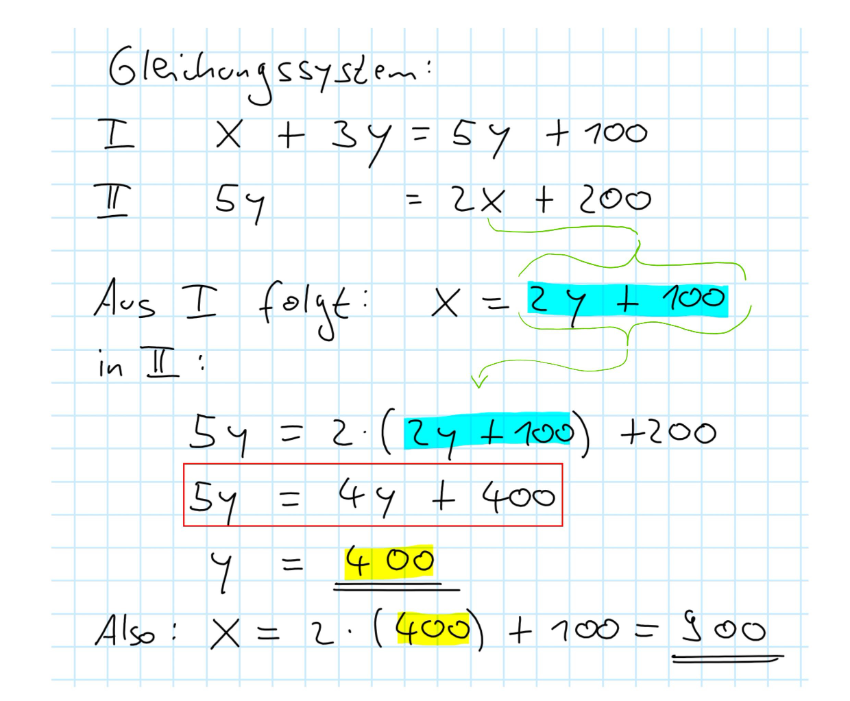 Gleichungssystem:
I x + 3y = 5y + 100
II 5y = 2x + 200
Aus I folgt: x = 2y + 100
in II:
5y = 2·(2y + 100) + 200
5y = 4y + 400
y = 400
Also: x = 2·(400) + 100 = 900